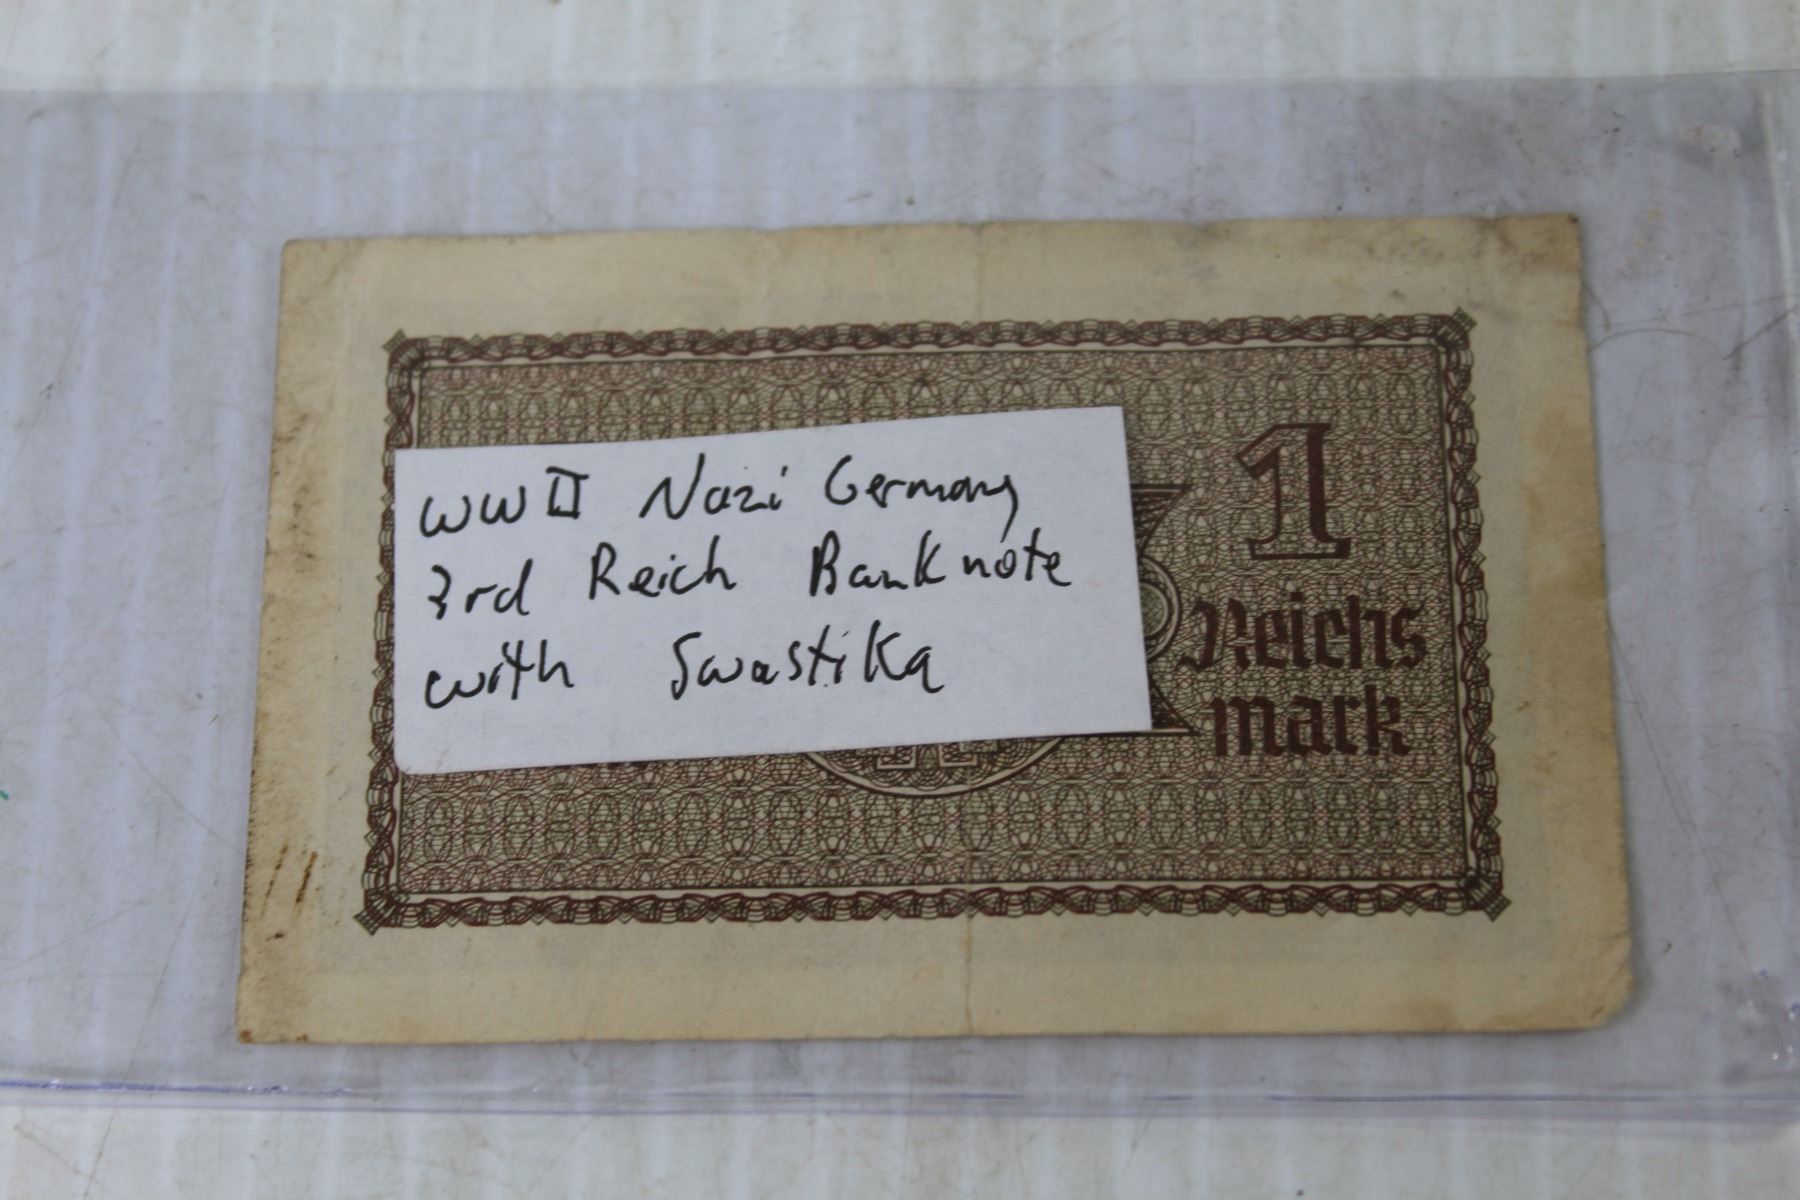 WWII Nazi Germany
3rd Reich Banknote
with Swastika
1
Reichs
mark